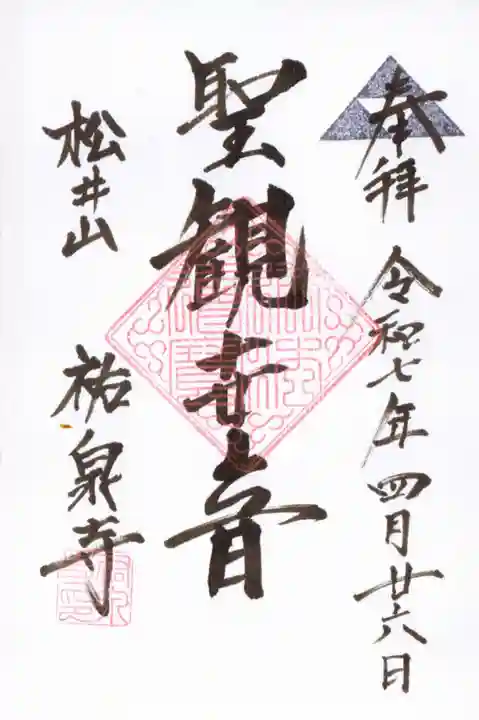 奉拝 令和七年四月廿六日
聖観世音
松井山 祐泉寺